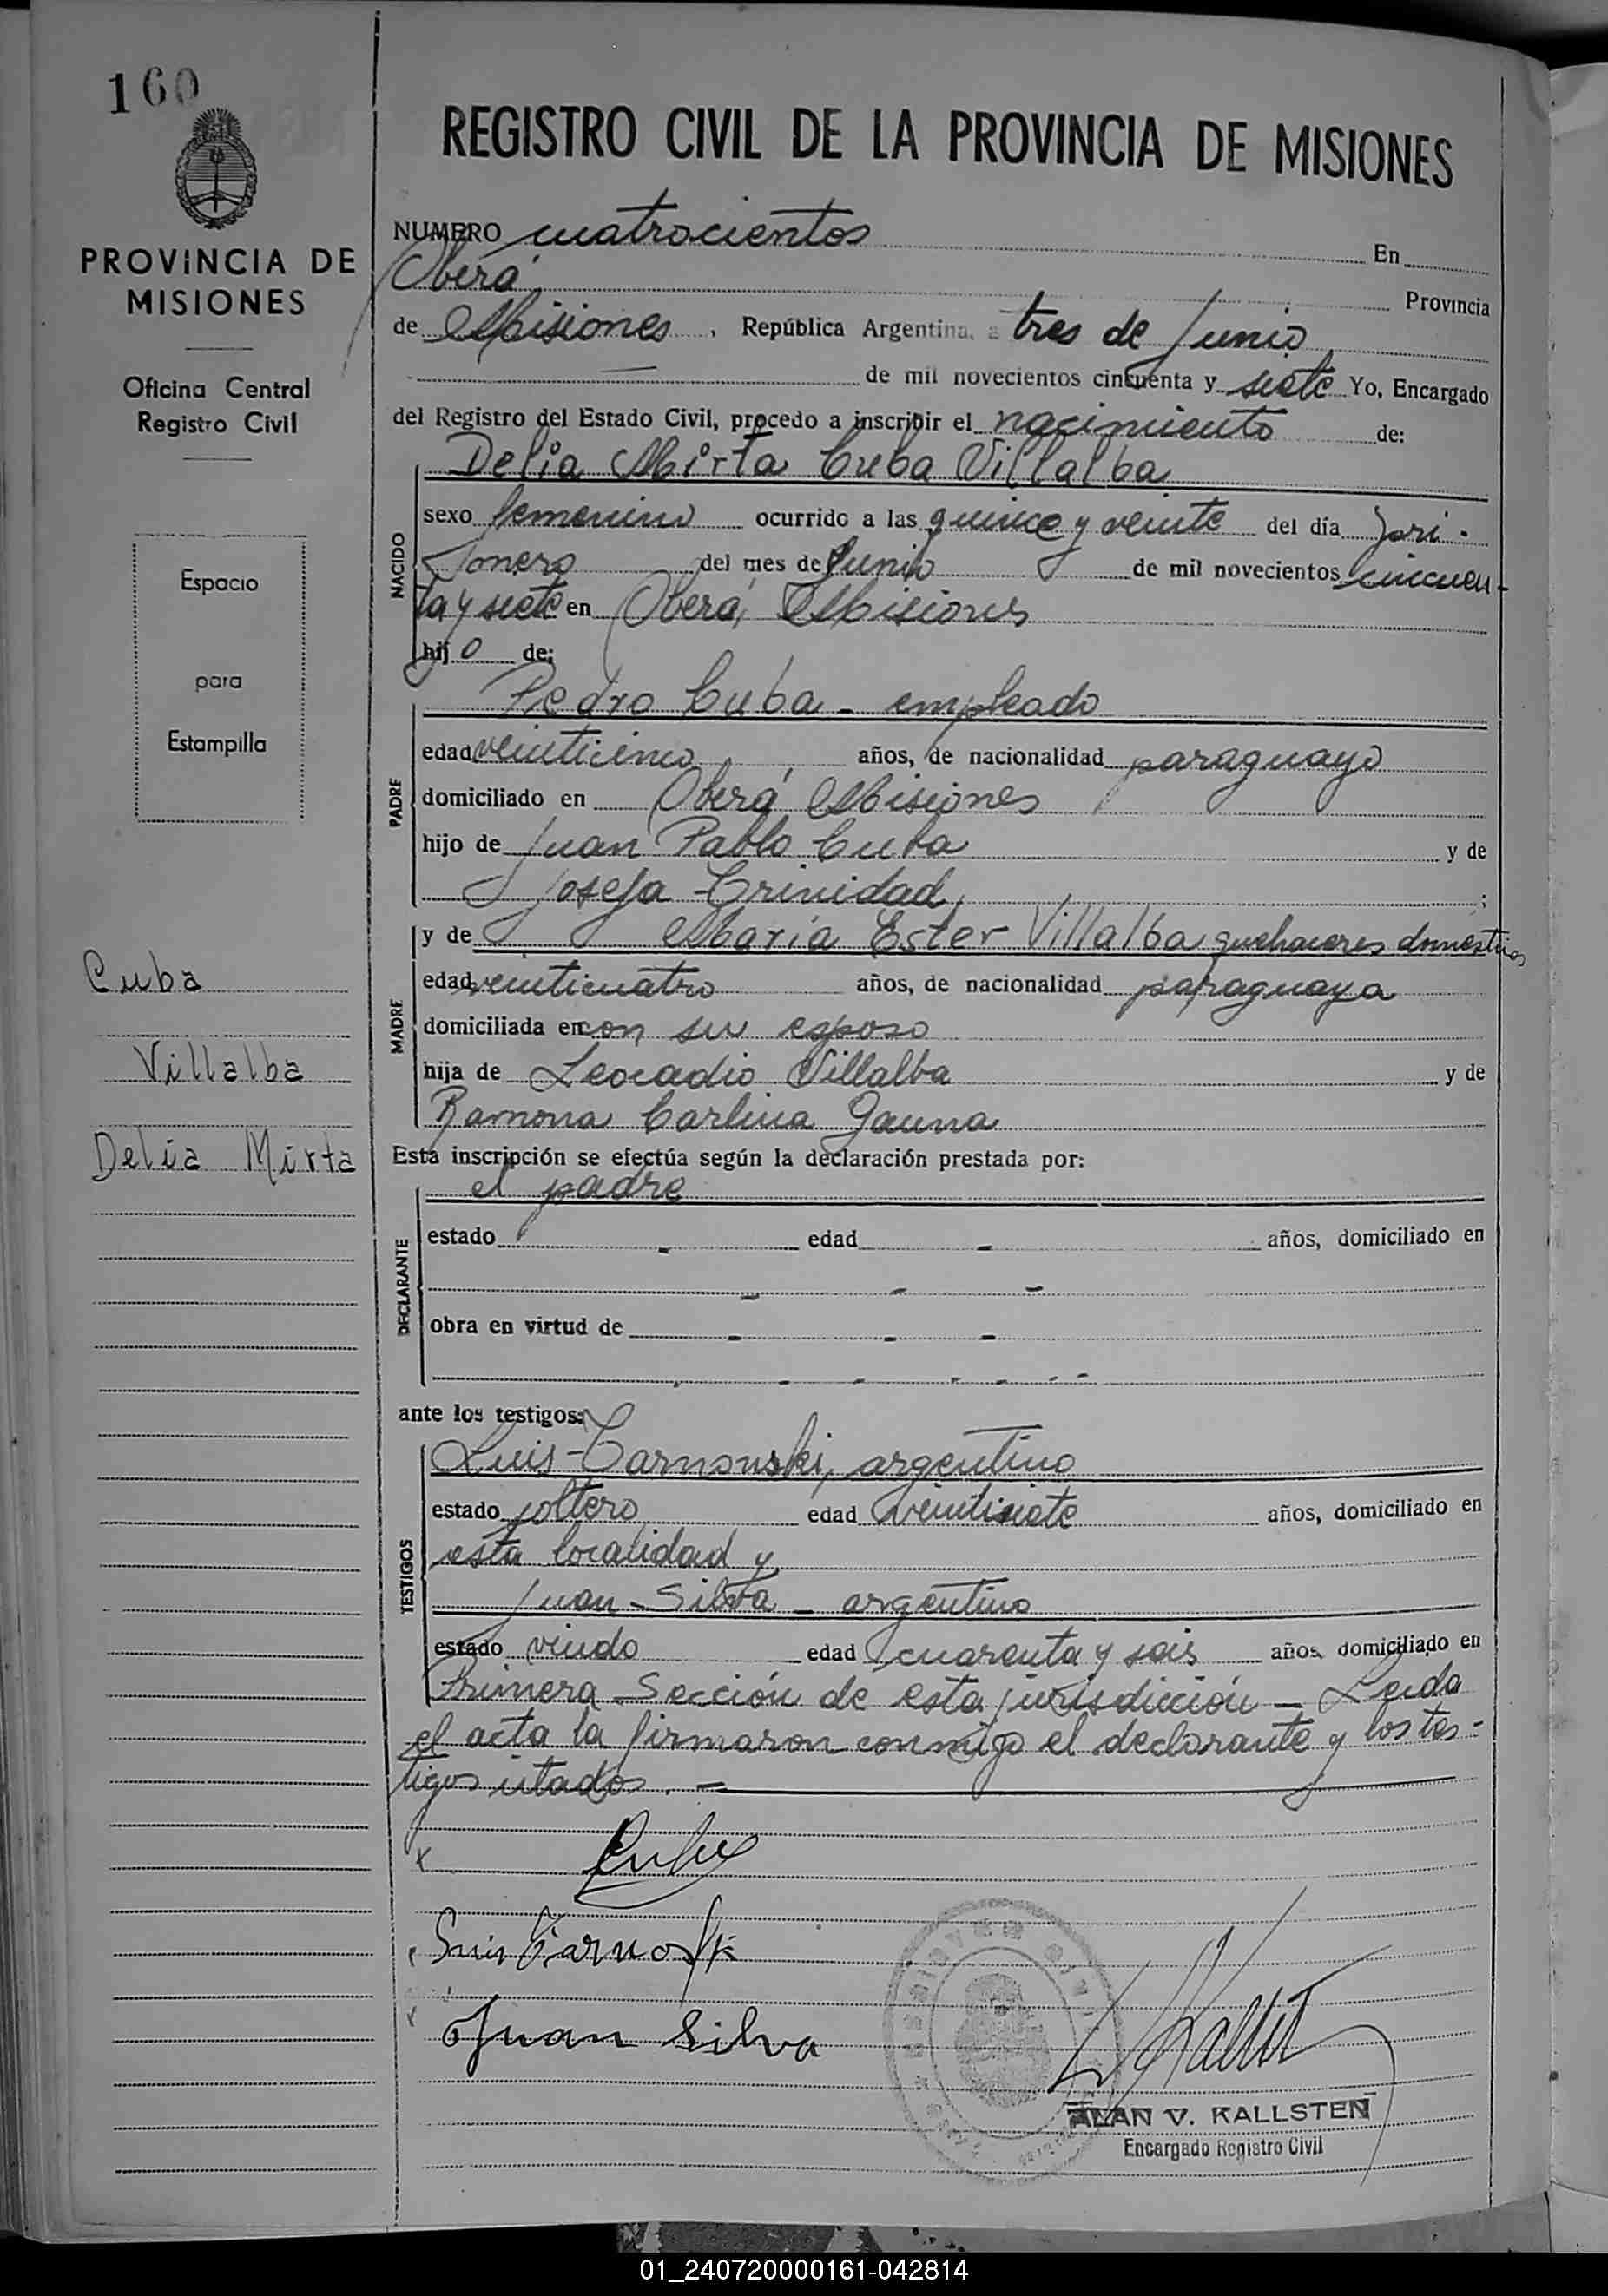 160
PROVINCIA DE
MISIONES
Oficina Central
Registro Civil
Espacio
para
Estampilla
Cuba
Villalba
Delia Mirta
REGISTRO CIVIL DE LA PROVINCIA DE MISIONES
NUMERO cuatrocientos En
Oberá Provincia
de Misiones, República Argentina, a tres de Junio
de mil novecientos cincuenta y siete Yo, Encargado
del Registro del Estado Civil, procedo a inscribir el nacimiento de:
Delia Mirta Cuba Villalba
NACIDO
sexo femenino ocurrido a las quince y veinte del día pri-
mero del mes de Junio de mil novecientos cincuen-
ta y siete en Oberá, Misiones
hijo de:
Pedro Cuba - empleado
PADRE
edad veinticinco años, de nacionalidad paraguayo
domiciliado en Oberá Misiones
hijo de Juan Pablo Cuba y de
Josefa Trinidad;
y de María Ester Villalba quehaceres domésticos
MADRE
edad veinticuatro años, de nacionalidad paraguaya
domiciliada en con su esposo
hija de Leocadio Villalba y de
Ramona Carlina Gauna
Esta inscripción se efectúa según la declaración prestada por:
el padre
DECLARANTE
estado - edad - años, domiciliado en
- - -
obra en virtud de - - -
- - - - - -
ante los testigos:
Luis Tarnowski, argentino
TESTIGOS
estado soltero edad veintisiete años, domiciliado en
esta localidad y
Juan Silva - argentino
estado viudo edad cuarenta y seis años, domiciliado en
Primera Sección de esta jurisdicción - Leida
el acta la firmaron conmigo el declarante y los tes-
tigos citados. -
x Cuba
Luis Tarnoski
x Juan Silva
ALAN V. KALLSTEN
Encargado Registro Civil
01_240720000161-042814